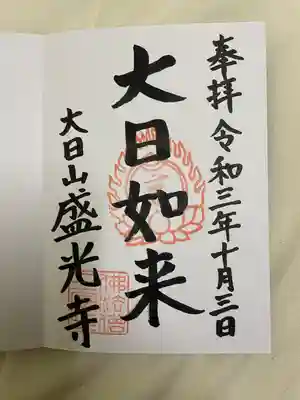 奉拝 令和三年十月三日
大日如来
大日山盛光寺